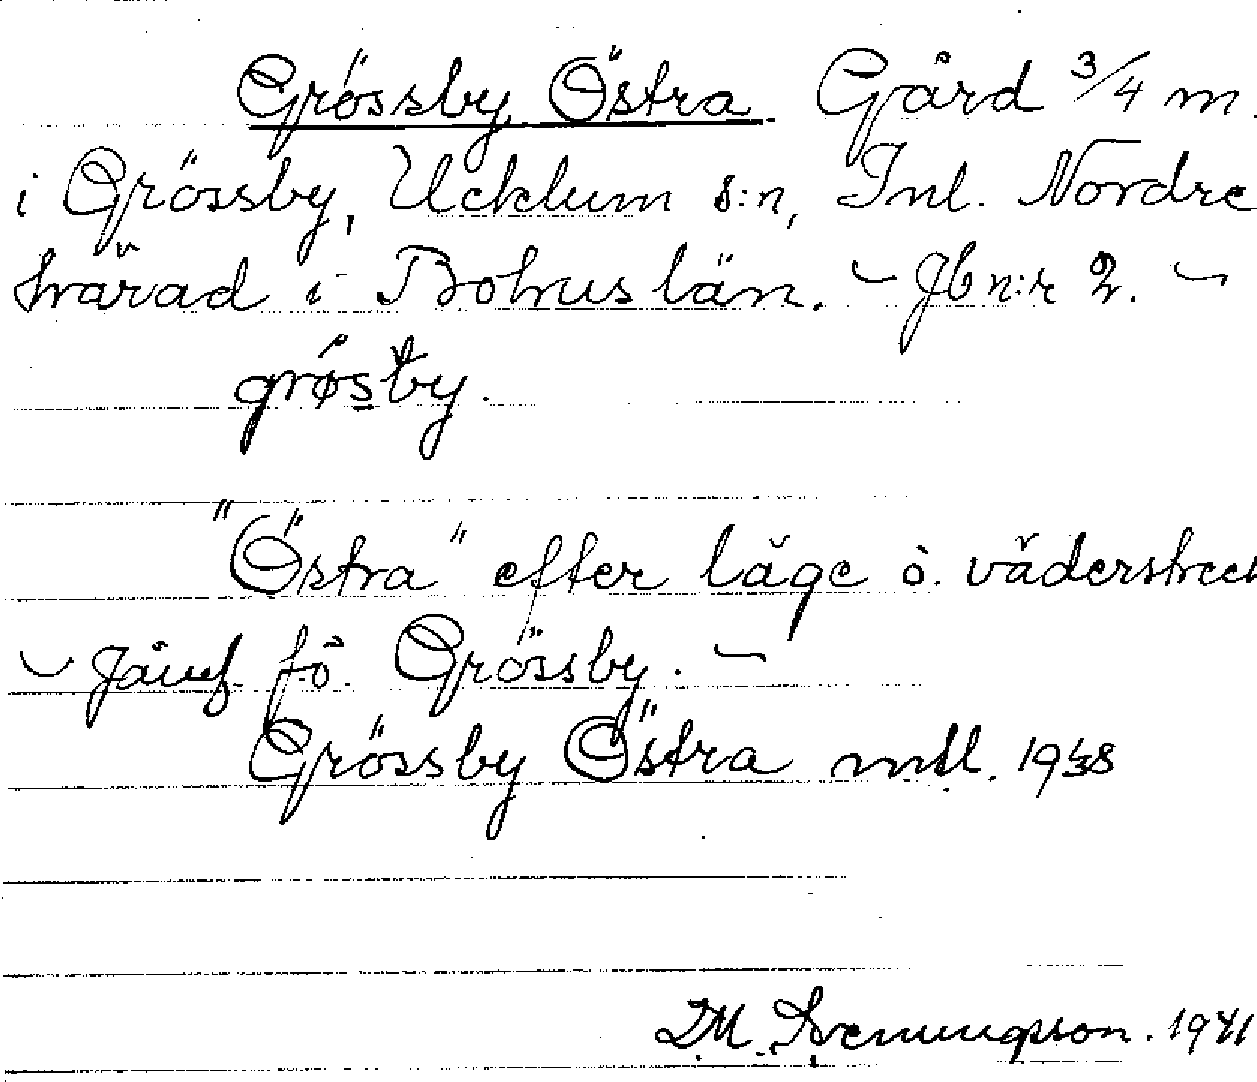 Grössby Östra. Gård 3/4 m.
i Grössby, Ucklum s:n, Inl. Nordre
härad i Bohuslän. – Jb n:r 2. –
grøsby.
"Östra" efter läge o. väderstreck
– Jämf. fö. Grössby. –
Grössby Östra mtl. 1938
D.M. 1941